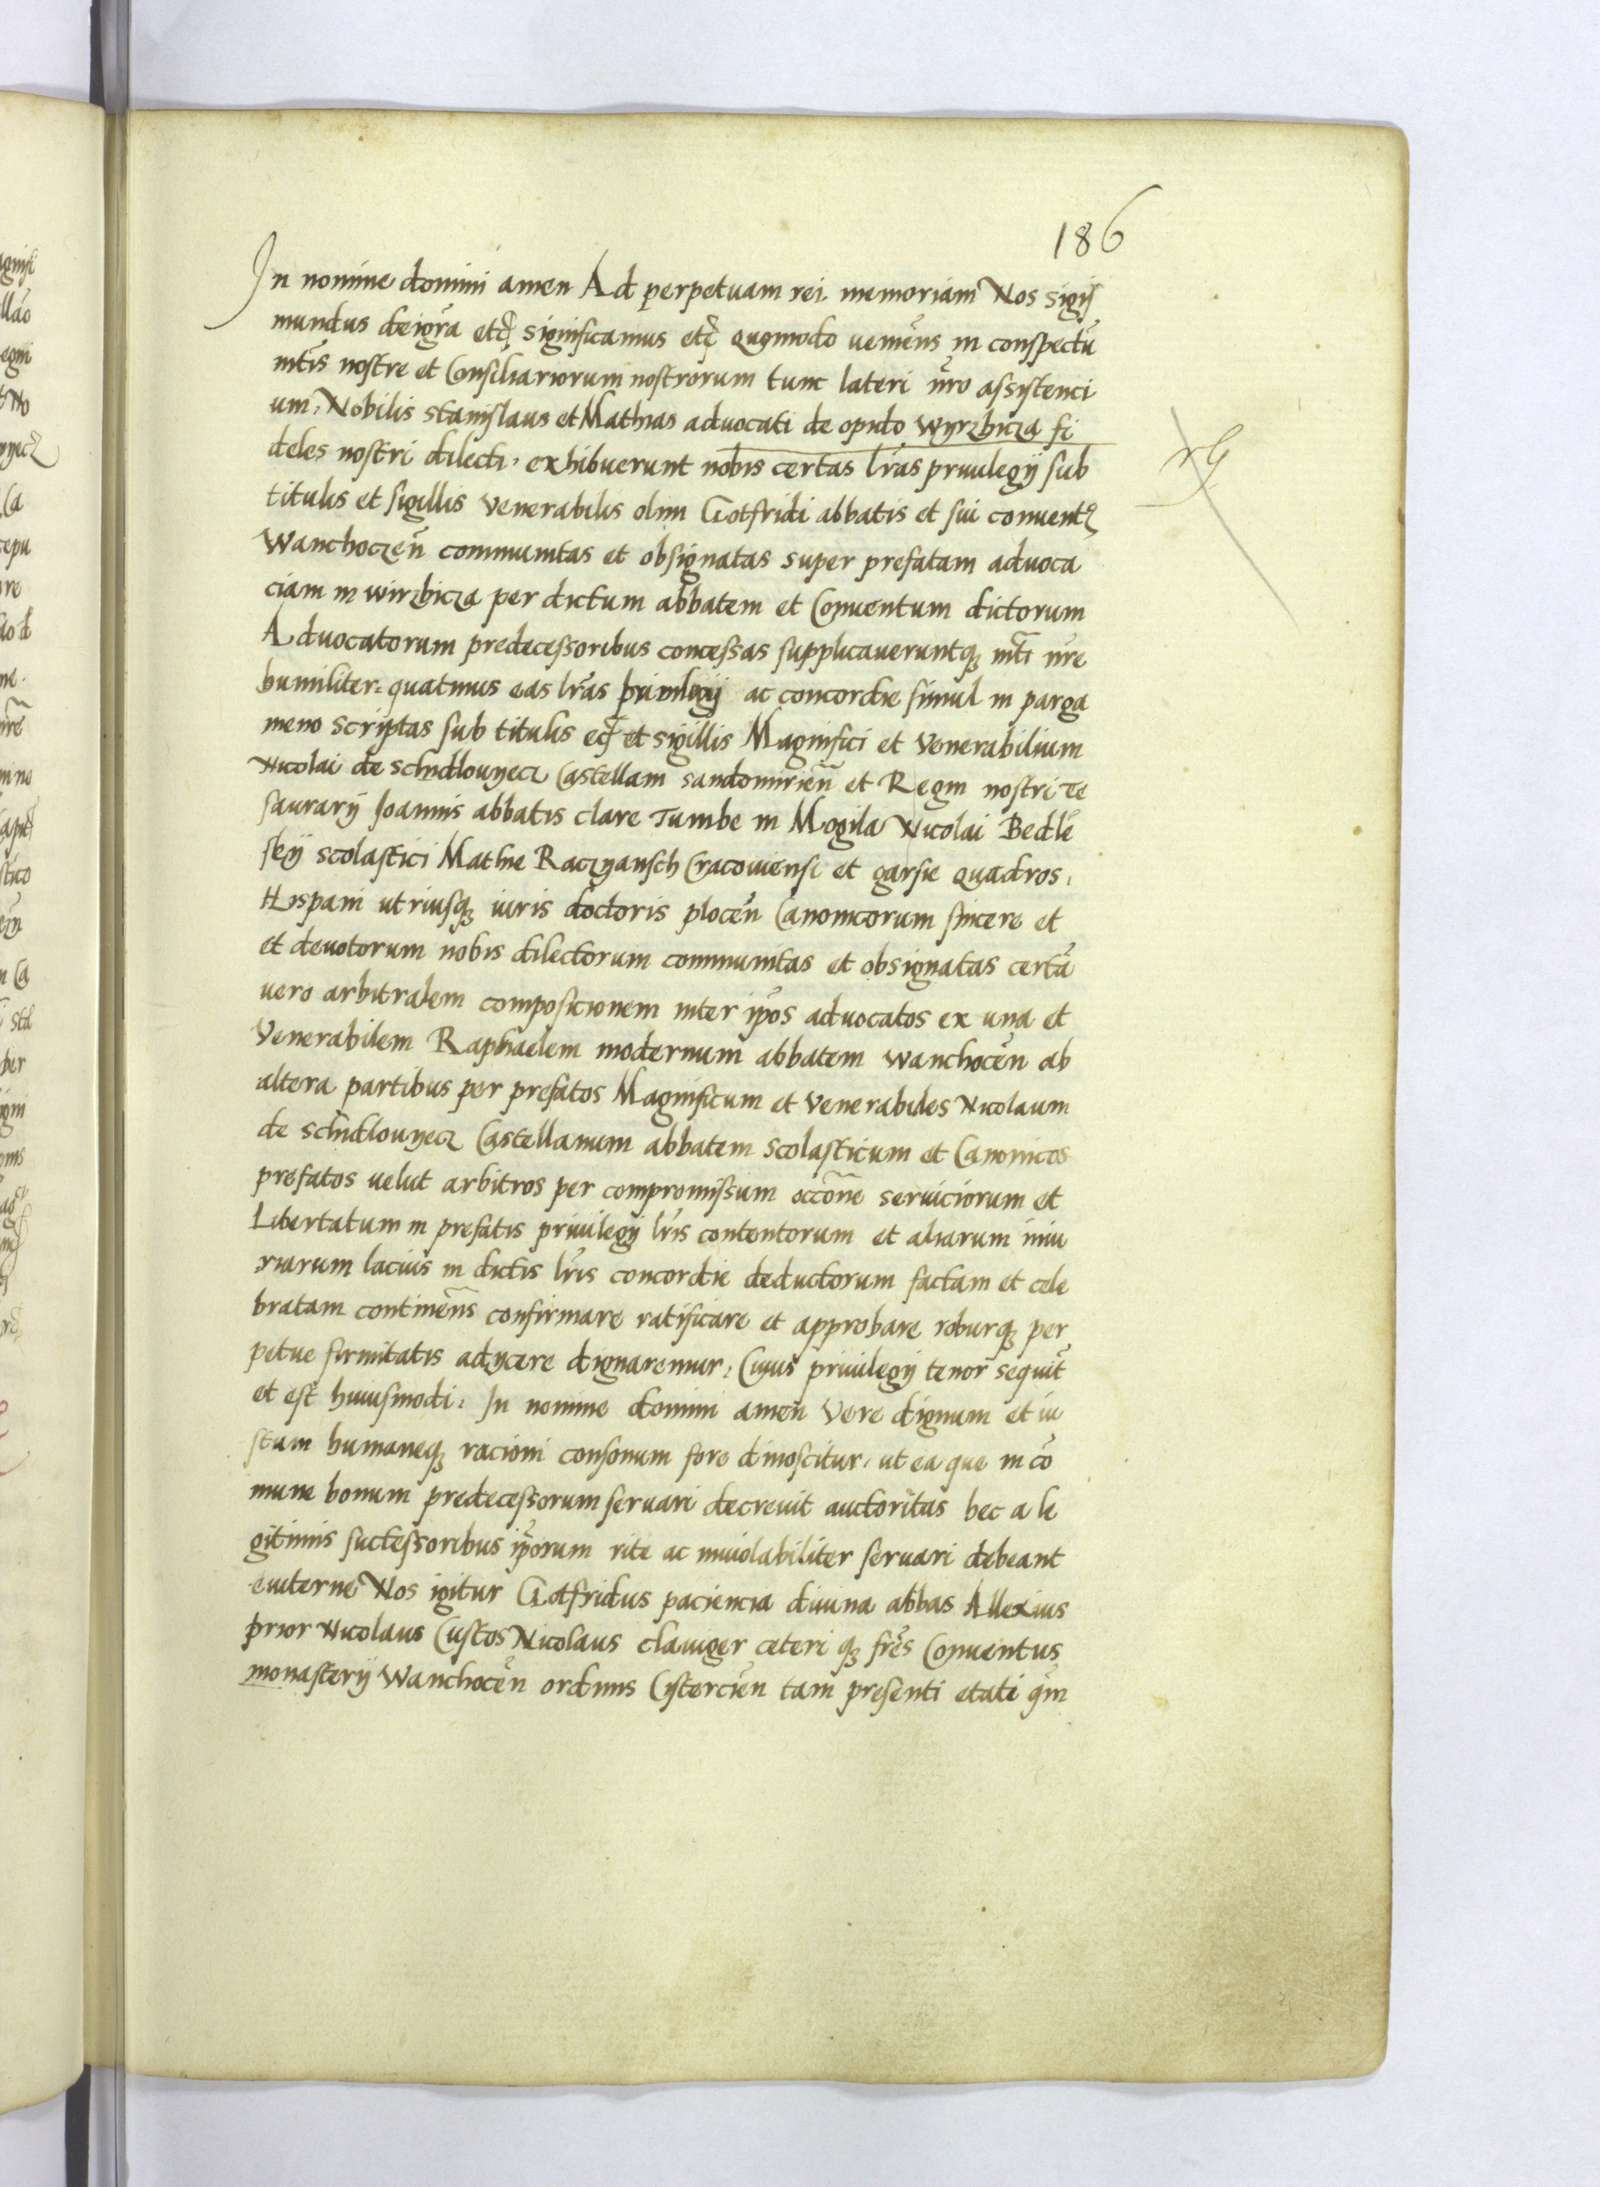 186
In nomine domini amen Ad perpetuam rei memoriam Nos Sigis
mundus deigr̃a etc̃ significamus etc̃ quomodo veniẽns in conspectũ
mt̃is nostre et Consiliariorum nostrorum tunc lateri nr̃o assistenci
um, Nobilis Stanislaus et Mathias advocati de opido Wyrzbicza fi
deles nostri dilecti, exhibuerunt nobis certas lr̃as privilegij sub
titulis et sigillis Venerabilis olim Gotfridi abbatis et sui conventꝰ
Wanchoczeñ communitas et obsignatas super prefatam advoca
ciam in wirzbicza per dictum abbatem et Conventum dictorum
Advocatorum predecessoribus concessas supplicaveruntqꝫ mt̃i nr̃e
humiliter: quatinus eas lr̃as privilegij ac concordie simul in parga
meno scriptas sub titulis et sigillis Magnifici et Venerabilium
Nicolai de Schidlouyecz Castellani Sandomirieñ et Regni nostri Te
saurarij Joannis abbatis clare Tumbe in Mogila Nicolai Bedlẽ
skij scolastici Mathie Raczyansch Cracouiensi et garsie quadros,
Hispani utriusqꝫ iuris doctoris ploceñ Canonicorum sincere et
et devotorum nobis dilectorum communitas et obsignatas certã
vero arbitralem composicionem inter ip̃os advocatos ex una et
Venerabilem Raphaelem modernum abbatem Wanchoceñ ab
altera partibus per prefatos Magnificum et Venerabiles Nicolaum
de Schidlouyecz Castellanum abbatem scolasticum et Canonicos
prefatos velut arbitros per compromissum occõne serviciorum et
Libertatum in prefatis privilegij lr̃is contentorum et aliarum iniu
riarum lacius in dictis lr̃is concordie deductorum factam et cele
bratam continẽns confirmare ratificare et approbare roburqꝫ per
petue firmitatis adijcere dignaremur, Cuius privilegij tenor sequit̃
et est huiusmodi: In nomine domini amen Vere dignum et iu
stum humaneqꝫ racioni consonum fore dinoscitur, ut ea que in cõ
mune bonum predecessorum servari decrevit auctoritas hec a le
gitimis successoribus ip̃orum rite ac inviolabiliter servari debeant
eviterne Nos igitur Gotfridus paciencia divina abbas Allexius
prior Nicolaus Custos Nicolaus claviger ceteri qꝫ fr̃es Conventus
monasterij Wanchoceñ ordinis Cisterciẽn tam presenti etati q̃m